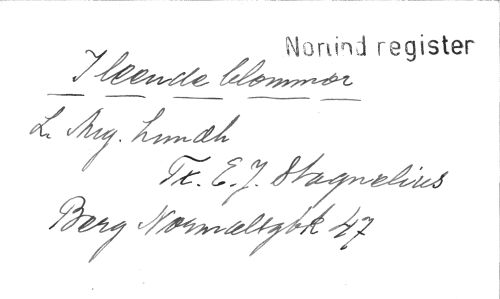 Norlind register
I leende blommor
L. Aug. Lundh
Tx. E. J. Stagnelius
Berg Normalsgbk 47